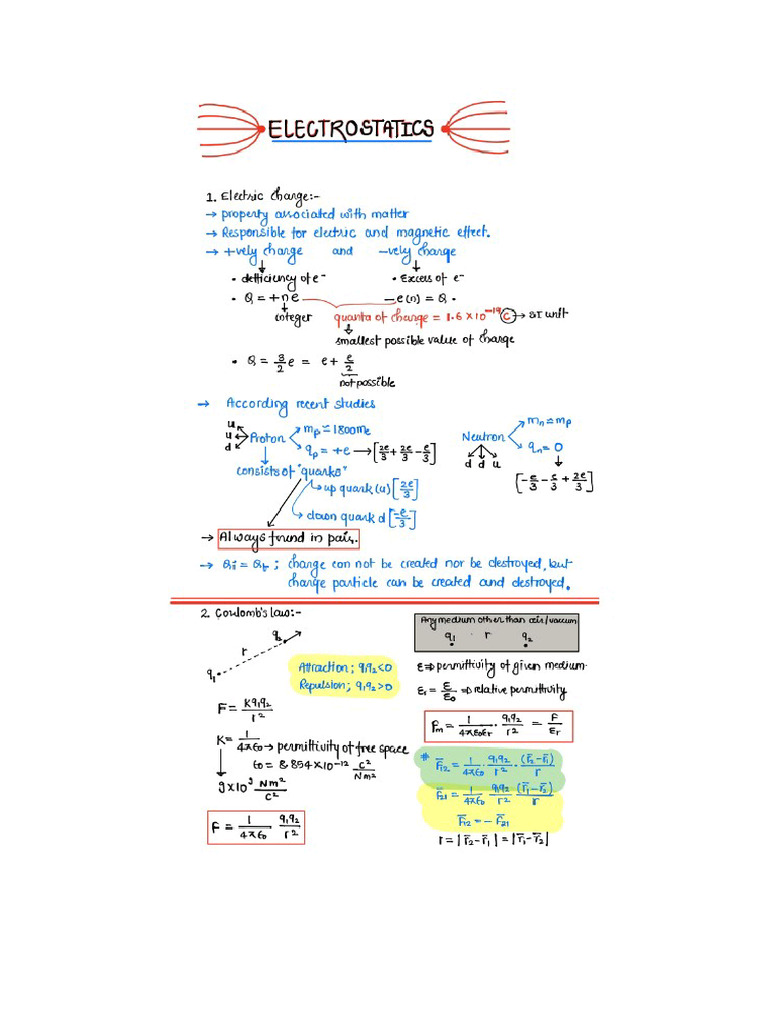 ELECTROSTATICS
1. Electric Charge:-
→ property associated with matter
→ Responsible for electric and magnetic effect.
→ +vely charge and -vely charge
• defficiency of e⁻ • Excess of e⁻
• Q = +ne -e(n) = Q •
integer quanta of charge = 1.6 × 10⁻¹⁹ C → SI unit
smallest possible value of charge
• Q = 3/2 e = e + e/2
not possible
→ According recent studies
u u d Proton mp ≃ 1800me
qp = +e → [2e/3 + 2e/3 - e/3]
Neutron mn ≃ mp
qn = 0
d d u
[-e/3 - e/3 + 2e/3]
consists of "quarks"
up quark (u) [2e/3]
down quark d [-e/3]
→ Always found in pair.
→ Qi = Qf ; charge can not be created nor be destroyed, but
charge particle can be created and destroyed.
2. Coulomb's law:-
q1 r q2
Attraction; q1q2 < 0
Repulsion; q1q2 > 0
F = Kq1q2/r²
K = 1/4πε0 → permittivity of free space
ε0 = 8.854 × 10⁻¹² C²/Nm²
9 × 10⁹ Nm²/C²
F = 1/4πε0 q1q2/r²
Any medium other than air/vaccum
q1 r q2
ε ⇒ permittivity of given medium.
εr = ε/ε0 ⇒ relative permittivity
Fm = 1/4πε0εr · q1q2/r² = F/εr
# F̄12 = 1/4πε0 · q1q2/r² · (r̄2 - r̄1)/r
F̄21 = 1/4πε0 q1q2/r² (r̄1 - r̄2)/r
F̄12 = - F̄21
r = |r̄2 - r̄1| = |r̄1 - r̄2|